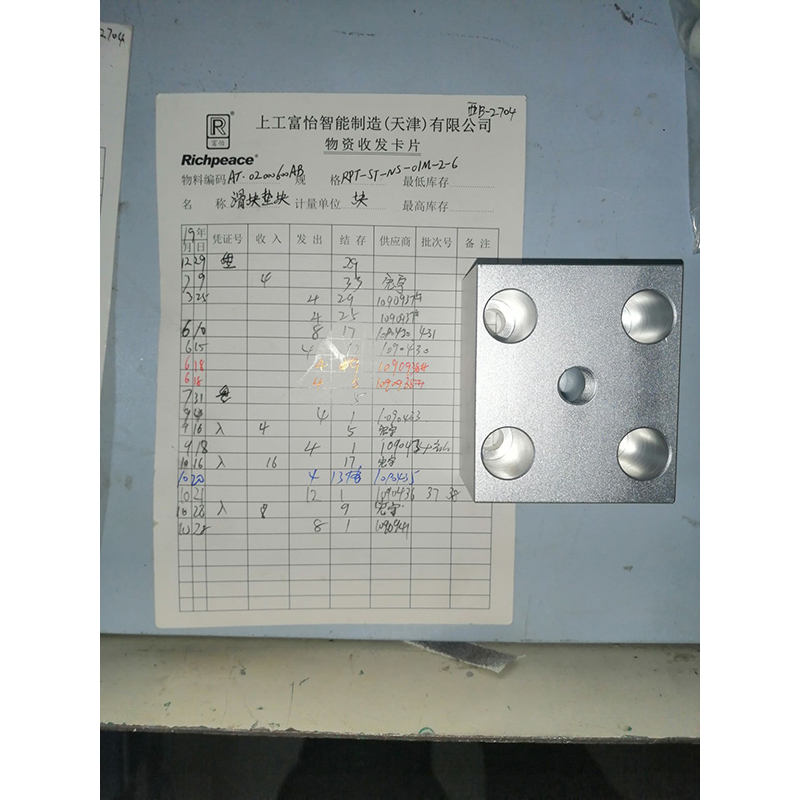 2704
西B-2704
R
富怡
Richpeace®
上工富怡智能制造(天津)有限公司
物资收发卡片
物料编码 AT-0200600AB 规 格 RPT-ST-NS-01M-2-6 最低库存
名 称 滑块垫块 计量单位 块 最高库存
19年 月 日 凭证号 收入 发出 结存 供应商 批次号 备注
12 29 29
7 9 4 33
3 25 4 29
4 25
6 10 8 17 431
6 15 4 1090430
6 18 4
6 18 4
7 31 5
4 1 1090433
9 16 入 4 5 宏宇
9 18 4 1
10 16 入 16 17 宏宇
10 20 4 13
10 21 12 1 1090436 37 38
10 28 入 8 9 宏宇
10 28 8 1